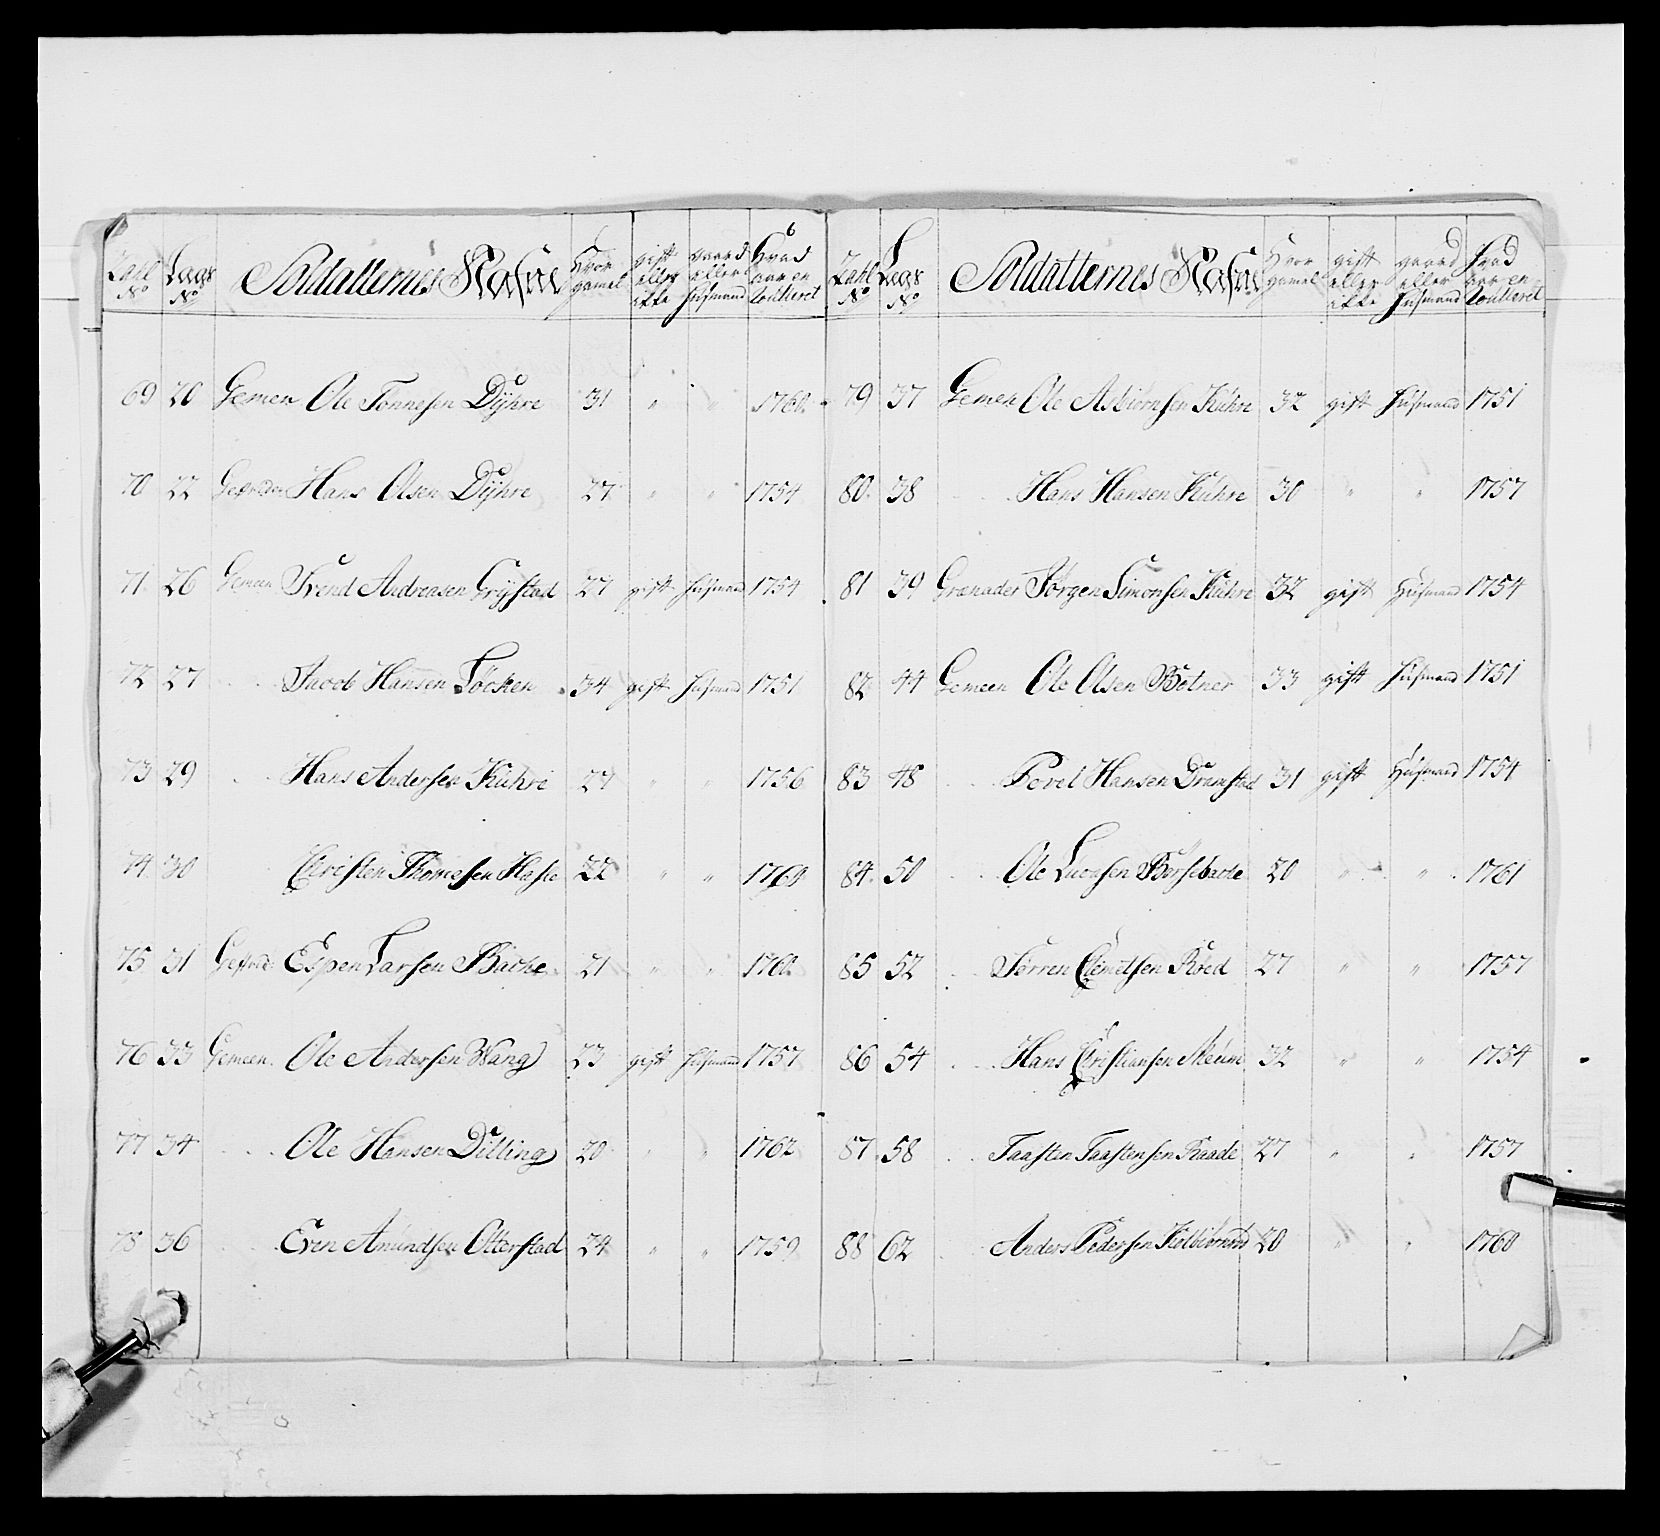 Tahl No Lægs No Soldatternes Nafne Hvor gamel gift eller ikke gaard eller Husmand Hvad aar en Roulleret
69 20 Gemen Ole Tonnesen Dyhre 31 " " 1760
70 22 Gefreider Hans Olsen Dyhre 27 " " 1754
71 26 Gemeen Trend Andreasen Grystad 27 gift Husmand 1754
72 27 Jacob Hansen Löcken 34 gift Husmand 1751
73 29 Hans Andersen Kuhre 27 " " 1756
74 30 Christen Thomesen 22 " " 1760
75 31 Gefreid: Espen Larsen Bache 21 " " 1762
76 33 Gemeen Ole Andersen Wang 23 gift Husmand 1757
77 34 Ole Hansen Dilling 20 " " 1762
78 36 Even Amundsen Otterstad 24 " " 1759
Tahl No Lægs No Soldatternes Nafne Hvor gamel gift eller ikke gaard eller Husmand Hvad aar en Roulleret
79 37 Gemen Ole Asbiörnsen Kuhre 32 gift Husmand 1751
80 38 Hans Hansen Kuhre 30 " " 1757
81 39 Granader Jörgen Simonsen Kuhre 32 gift Husmand 1754
82 44 Gemeen Ole Olsen Botner 33 gift Husmand 1751
83 48 Povel Hansen Dramstad 31 gift Husmand 1754
84 50 Ole 20 " " 1761
85 52 Sörren Clemetsen Röed 27 " " 1757
86 54 Hans Christiansen 32 " " 1754
87 58 Taasten Taastensen Raade 27 " " 1757
88 62 Anders Pedersen 20 " " 1760